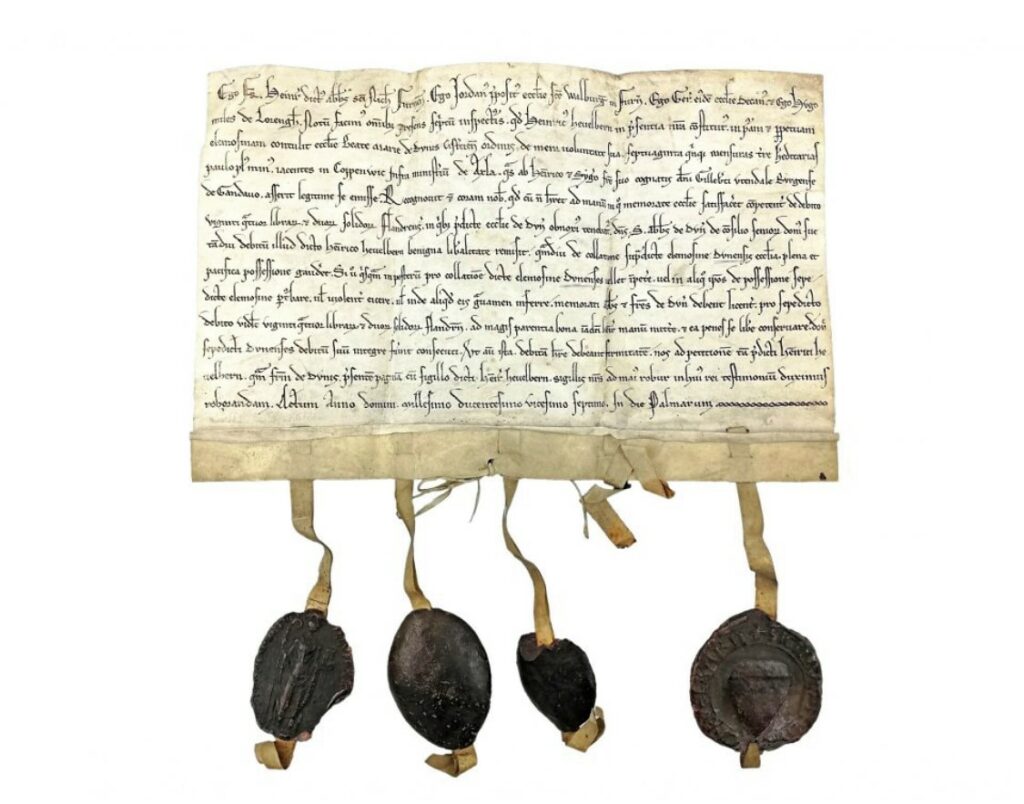 Ego fr. Heinr' dict' abb's s'ci Nich' Furn'. Ego Jordan' p'posit' eccl'ie s'ce Walburg' in Furn'. Ego Ger' eiusde eccl'ie Decan' & Ego Hugo
miles de Loreng'h. Notum facim' omnib' p'resens sc'ptum inspectur'. qd' Henric' Hevelbern in p'sentia n'ra constitut' in pura & p'petuam
elemosinam contulit eccl'ie Beate Marie de Dunis Cist'cien' ordinis. de mera voluntate sua. septuaginta q'nq' mensuras t're h'editarias
paulo pl' min'. iacentes in Coppenwic infra ministeriu' de Arla. q's ab Henrico & fr'e suo cognatis d'ni Gilleb'ti
de Gandavo. asserit legitime se emisse. Recognovit & coram nob'. qd' cu' n' h'ret ad manu' un' memorate eccl'ie satisfac'et competent' de debito
viginti q'tuor librar' & duor' solidor' flandrens'. in q'bi p'dicte eccl'ie de Dun' obnoxi' tenebat'. dn's S. abb's de Dun' de consilio senior' dom' sue
tam diu debitum illud dicto Henrico Hevelbern benigna lib'alitate remisit. q'mdiu de collatione sup'dicte elemosine Dunensis eccl'ia, plena et
pacifica possessione gaudet. Si v' q'sq'm in posteru' pro collatione dicte elemosine Dunenses vellet i'pete'. vel in aliq' ip'os de possessione sepe-
dicte elemosine p'turbare. ul' violent' eicere. ul' inde aliq'd eis gravamen inferre. memorati abb's & fr'es de Dun' debent licent' pro sepedicto
debito videl' viginti q'tuor librar' & duor' solidor' flandren'. ad magis parentia bona manu' mitte'. & ea penes se libe' conservare. donec
sepedicti Dunenses debitum suu' integre fu'int consecuti. Ut au' ista debitam h're debeant firmitate'. nos ad petitione' ta' p'dicti Henrici He-
velbern. q'm fr'm de Dunis, p'sente' pagina' cu' sigillo dicti Henr' Hevelbern. sigillis n'ris ad mai' robur in hui' rei testimonium duximus
roborandam. Actum Anno domini. millesimo ducentesimo vicesimo septimo. In die Palmarum